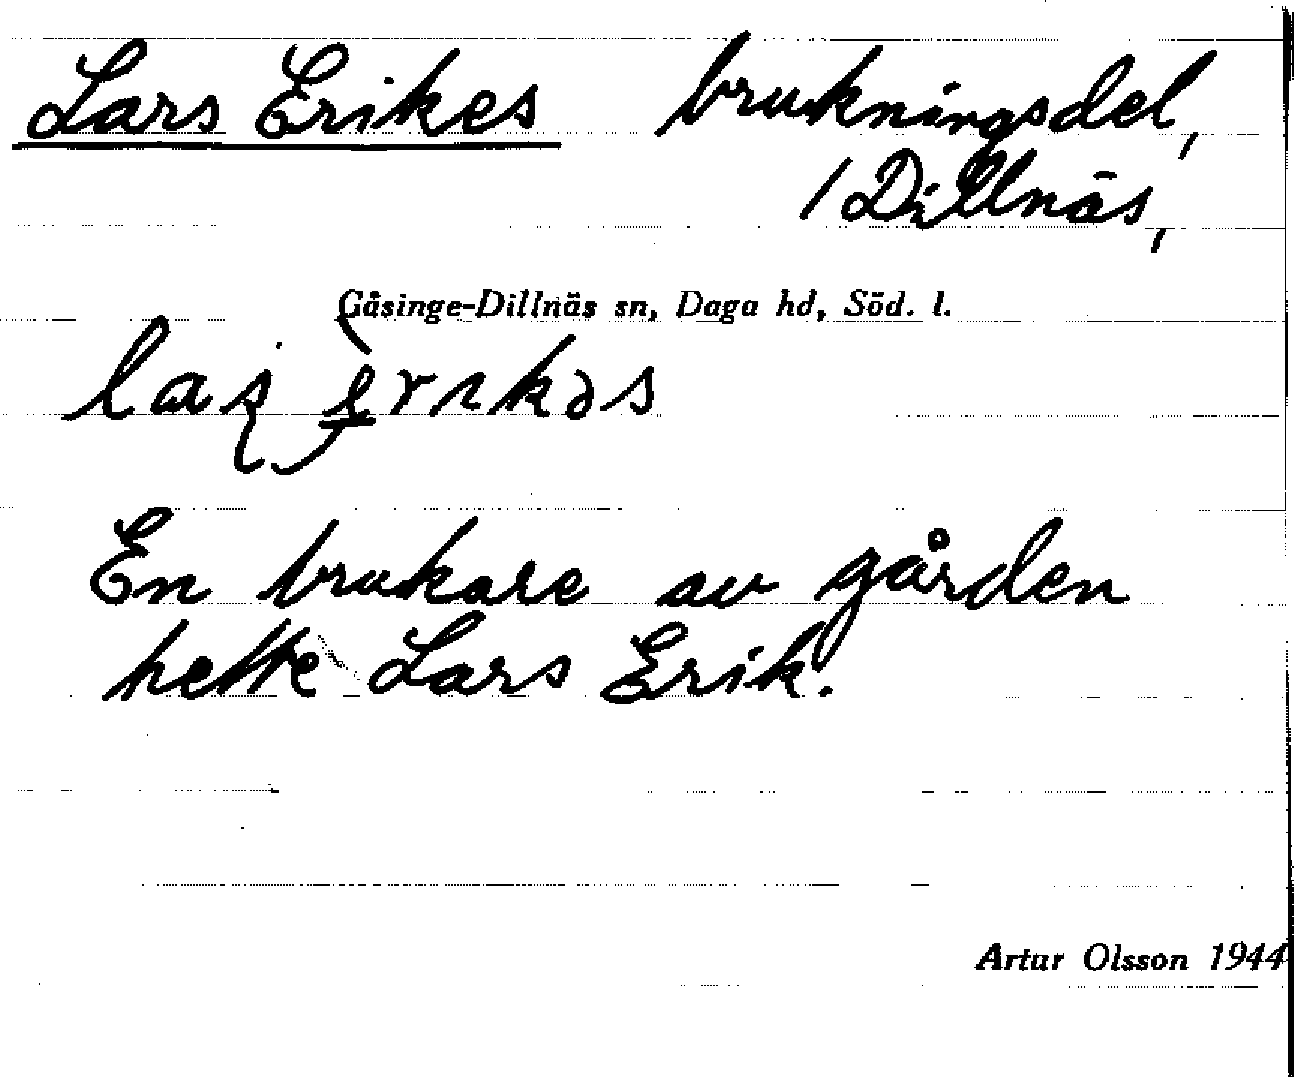 Lars Erikes brukningsdel,
/ Dillnäs,
Gåsinge-Dillnäs sn, Daga hd, Söd. l.
En brukare av gården
hette Lars Erik.
Artur Olsson 1944